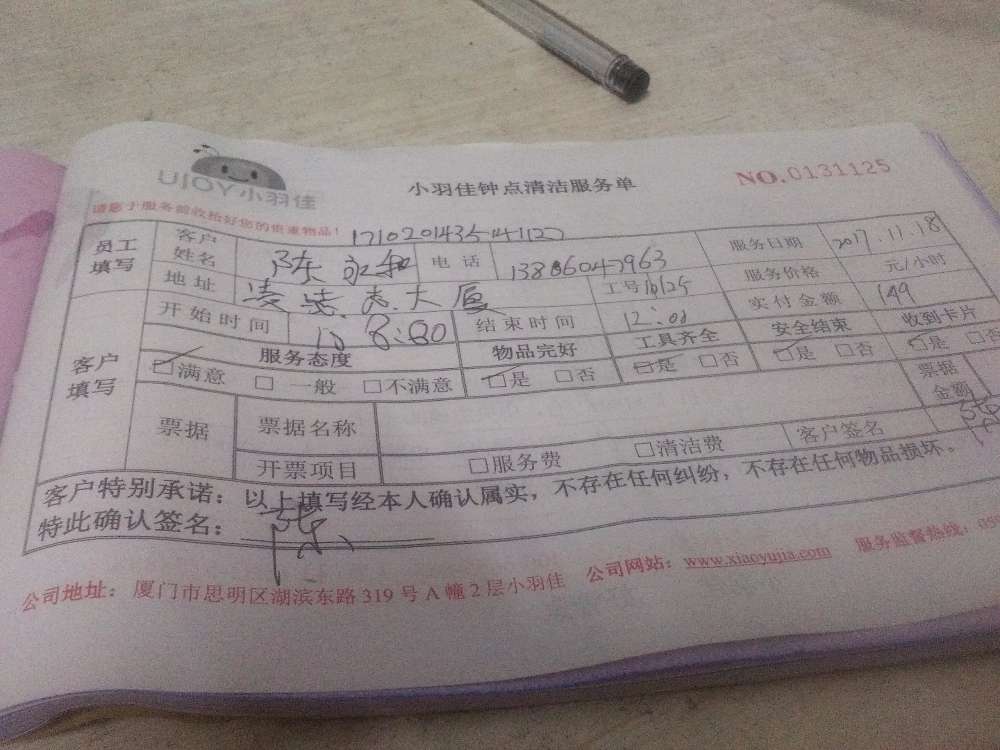 UJOY小羽佳
小羽佳钟点清洁服务单
NO.0131125
请您于服务前收拾好您的贵重物品!
员工填写 客户姓名 陈永和 电话 服务日期 2017.11.18
地址 大厦 工号 服务价格 元/小时
客户填写 开始时间 8:00 结束时间 12:00 实付金额 149
服务态度 物品完好 工具齐全 安全结束 收到卡片
满意 一般 不满意 是 否 是 否 是 否 是 否
票据 票据名称 票据金额
开票项目 服务费 清洁费 客户签名
客户特别承诺:以上填写经本人确认属实,不存在任何纠纷,不存在任何物品损坏。
特此确认签名:
公司地址:厦门市思明区湖滨东路319号A幢2层小羽佳 公司网站:www.xiaoyujia.com 服务监督热线: